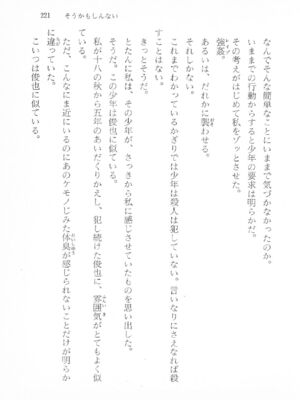 221 そうかもしんない
なんでそんな簡単なことにいままで気づかなかったのか。
いままでの行動からすると少年の要求は明らかだ。
その考えがはじめて私をゾッとさせた。
強姦。
あるいは、だれかに襲わせる。
それしかない。
これまでわかっているかぎりでは少年は殺人は犯していない。言いなりにさえなれば殺
きっとそうだ。
とたんに私は、その少年が、さっきから私に感じさせていたものを思い出した。
そうだ。この少年は俊也に似ている。
私が十八の秋から五年のあいだくりかえし、犯し続けた俊也に、雰囲気がとてもよく似
ている。
ただ、こんなにま近にいるのにあのケモノじみた体臭が感じられないことだけが明らか
に違っていた。
こいつは俊也に似ている。